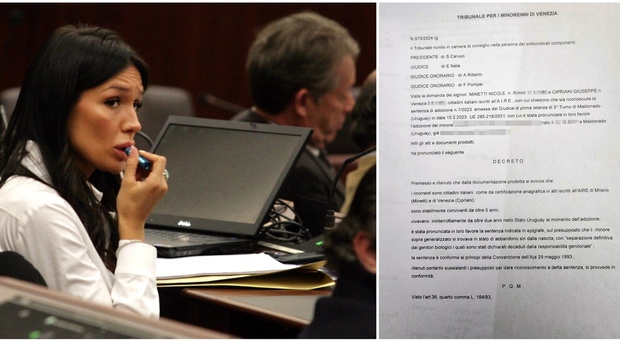 TRIBUNALE PER I MINORENNI DI VENEZIA
N.973/2024 rg.
Il Tribunale riunito in camera di consiglio nella persona dei sottoindicati componenti:
PRESIDENTE dr S.Caruso
GIUDICE dr E Italia
GIUDICE ONORARIO dr A. Riberto
GIUDICE ONORARIO dr F. Pompei
Vista la domanda dei signori MINETTI NICOLE n. Rimini e CIPRIANI GIUSEPPE n
Venezia cittadini italiani iscritti all'A.I.R.E., con cui chiedono che sia riconosciuta la
sentenza di adozione n.7/2023 emessa dal Giudice di prime istanza di 3° Turno di Maldonado
(Uruguay) in data 15.2.2023 UE 285-219/2021, con cui è stata pronunciata in loro favore
l'adozione del minore nato a Maldonado
(Uruguay), già
letti gli atti e documenti prodotti,
ha pronunciato il seguente
DECRETO
Premesso e ritenuto che dalla documentazione prodotta si evince che
i ricorrenti sono cittadini italiani come da certificazione anagrafica in atti iscritti all'AIRE di Milano
(Minetti) e di Venezia (Cipriani);
sono stabilmente conviventi da oltre 5 anni;
vivevano ininterrottamente da oltre due anni nello Stato Uruguay al momento dell'adozione;
è stata pronunciata in loro favore la sentenza indicata in epigrafe, sul presupposto che il minore
sopra generalizzato si trovava in stato di abbandono sin dalla nascita, con "separazione definitiva
dai genitori biologici i quali sono stati dichiarati decaduti dalla responsabilità genitoriale".
la sentenza è conforme ai principi della Convenzione dell'Aja 29 maggio 1993;
ritenuti pertanto sussistenti i presupposti per dare riconoscimento a detta sentenza, si provvede in
conformità.
P.Q.M
Visto l'art.36, quarto comma L. 184/83,
DELL